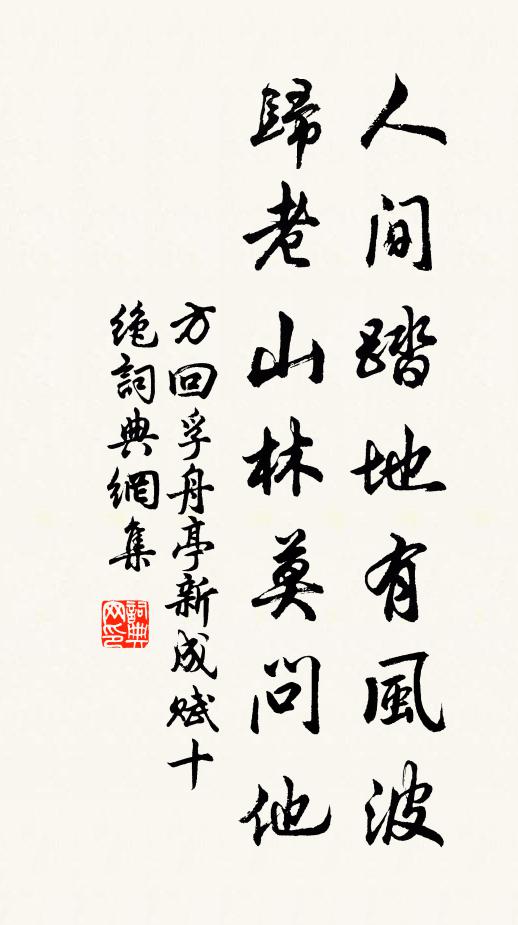 人間踏地有風波
歸老山林莫問他
方回孚舟亭新成賦十
絶詞典網集
詞典
网印